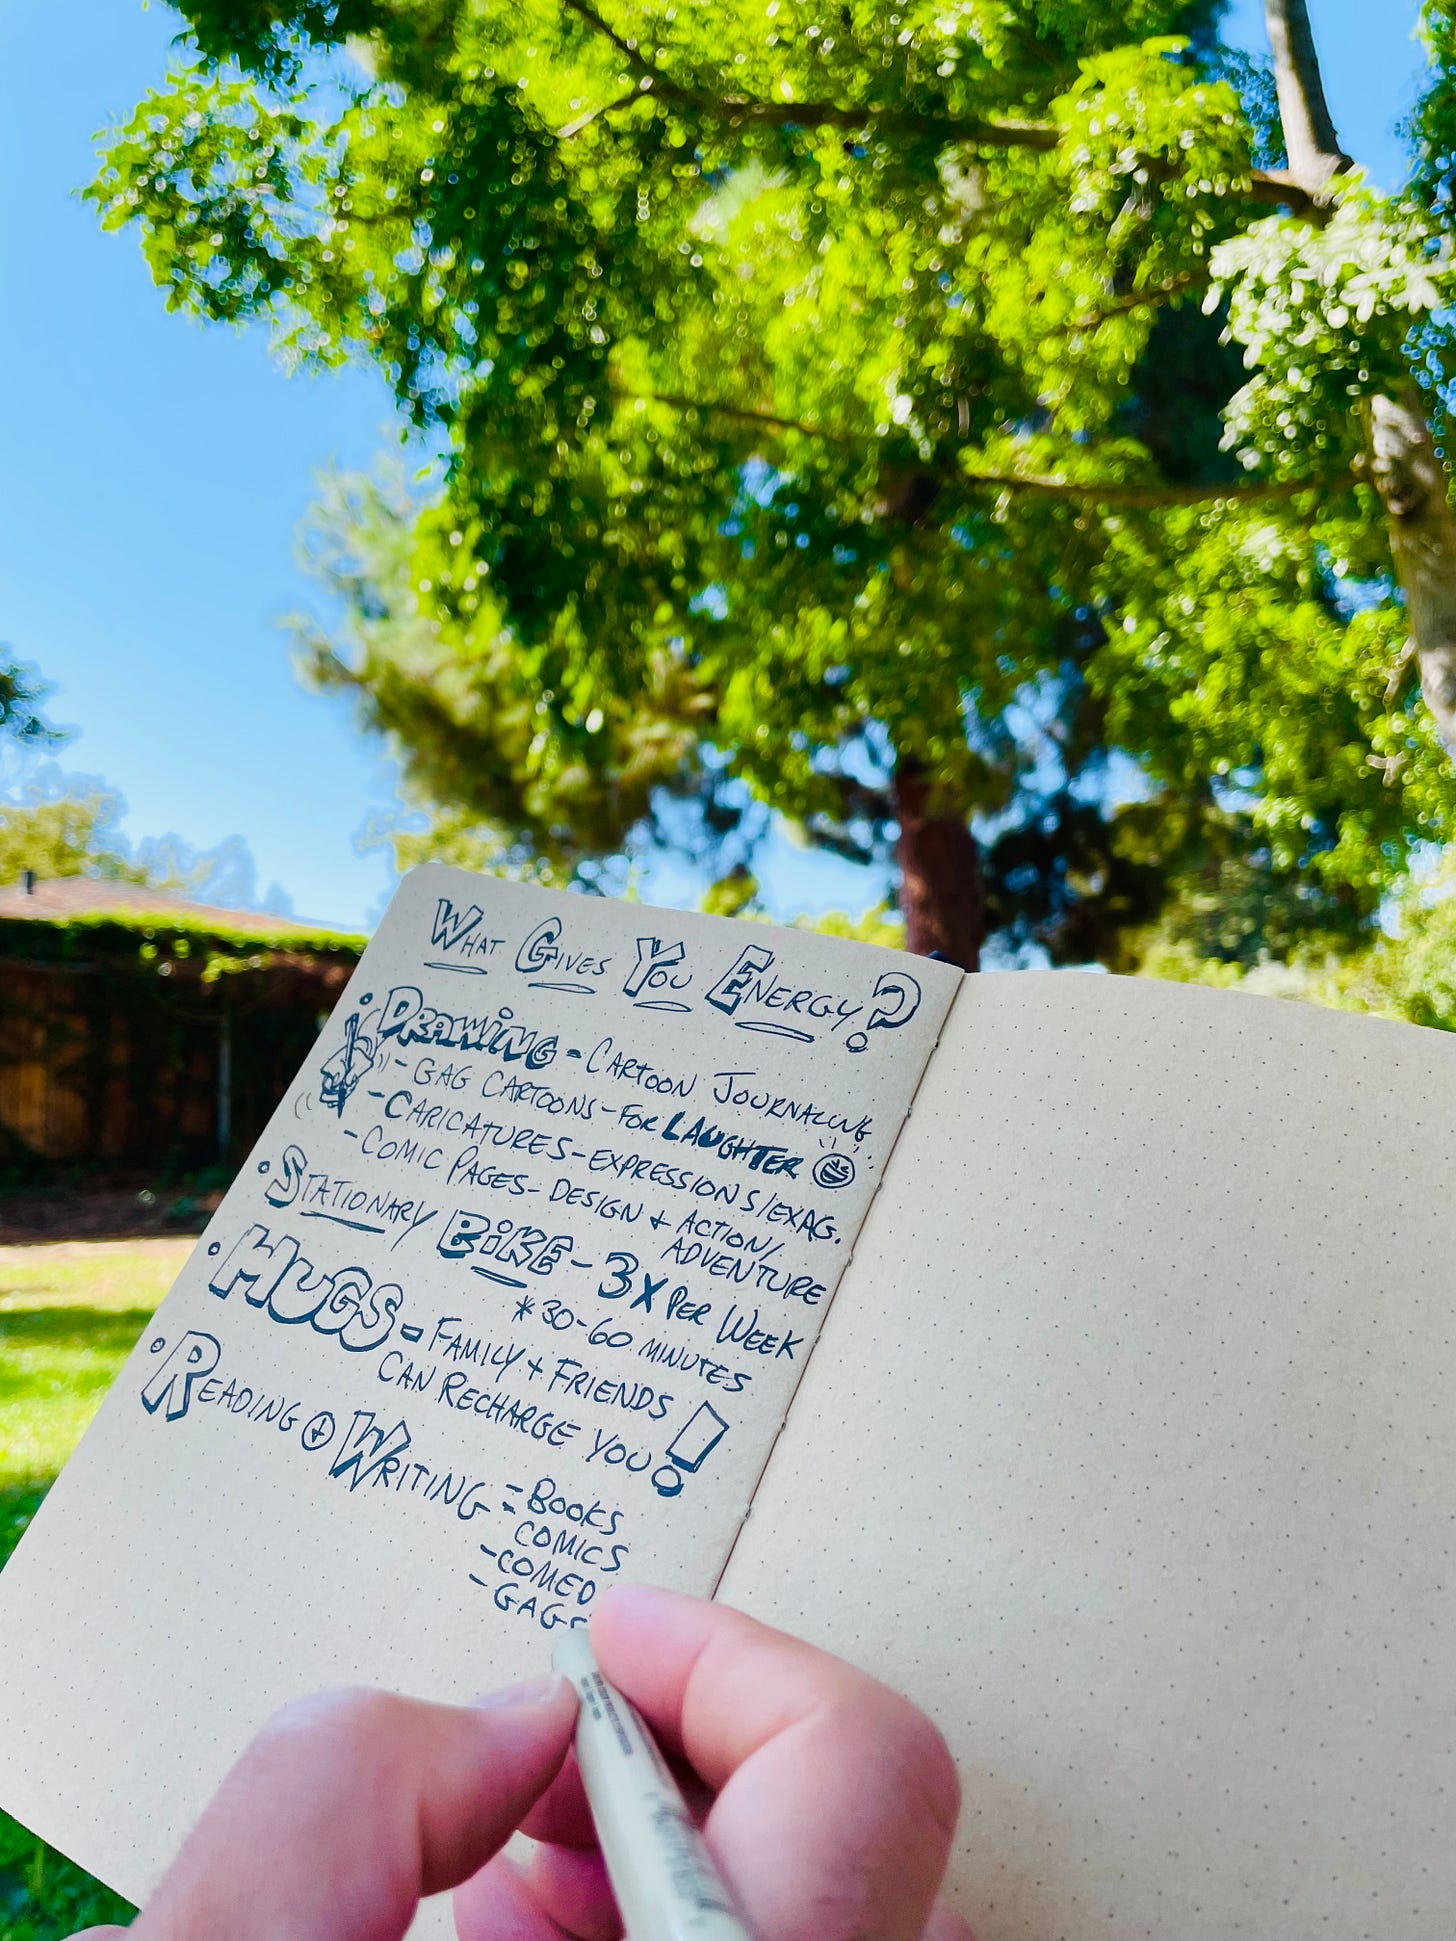 What Gives You Energy?
• Drawing - Cartoon Journaling
- Gag Cartoons - for Laughter
- Caricatures - Expressions/Exag.
- Comic Pages - Design + Action/
Adventure
• Stationary Bike - 3x per Week
* 30-60 minutes
• Hugs - Family + Friends
Can Recharge You!
• Reading + Writing - Books
- Comics
- Comed
- Gags